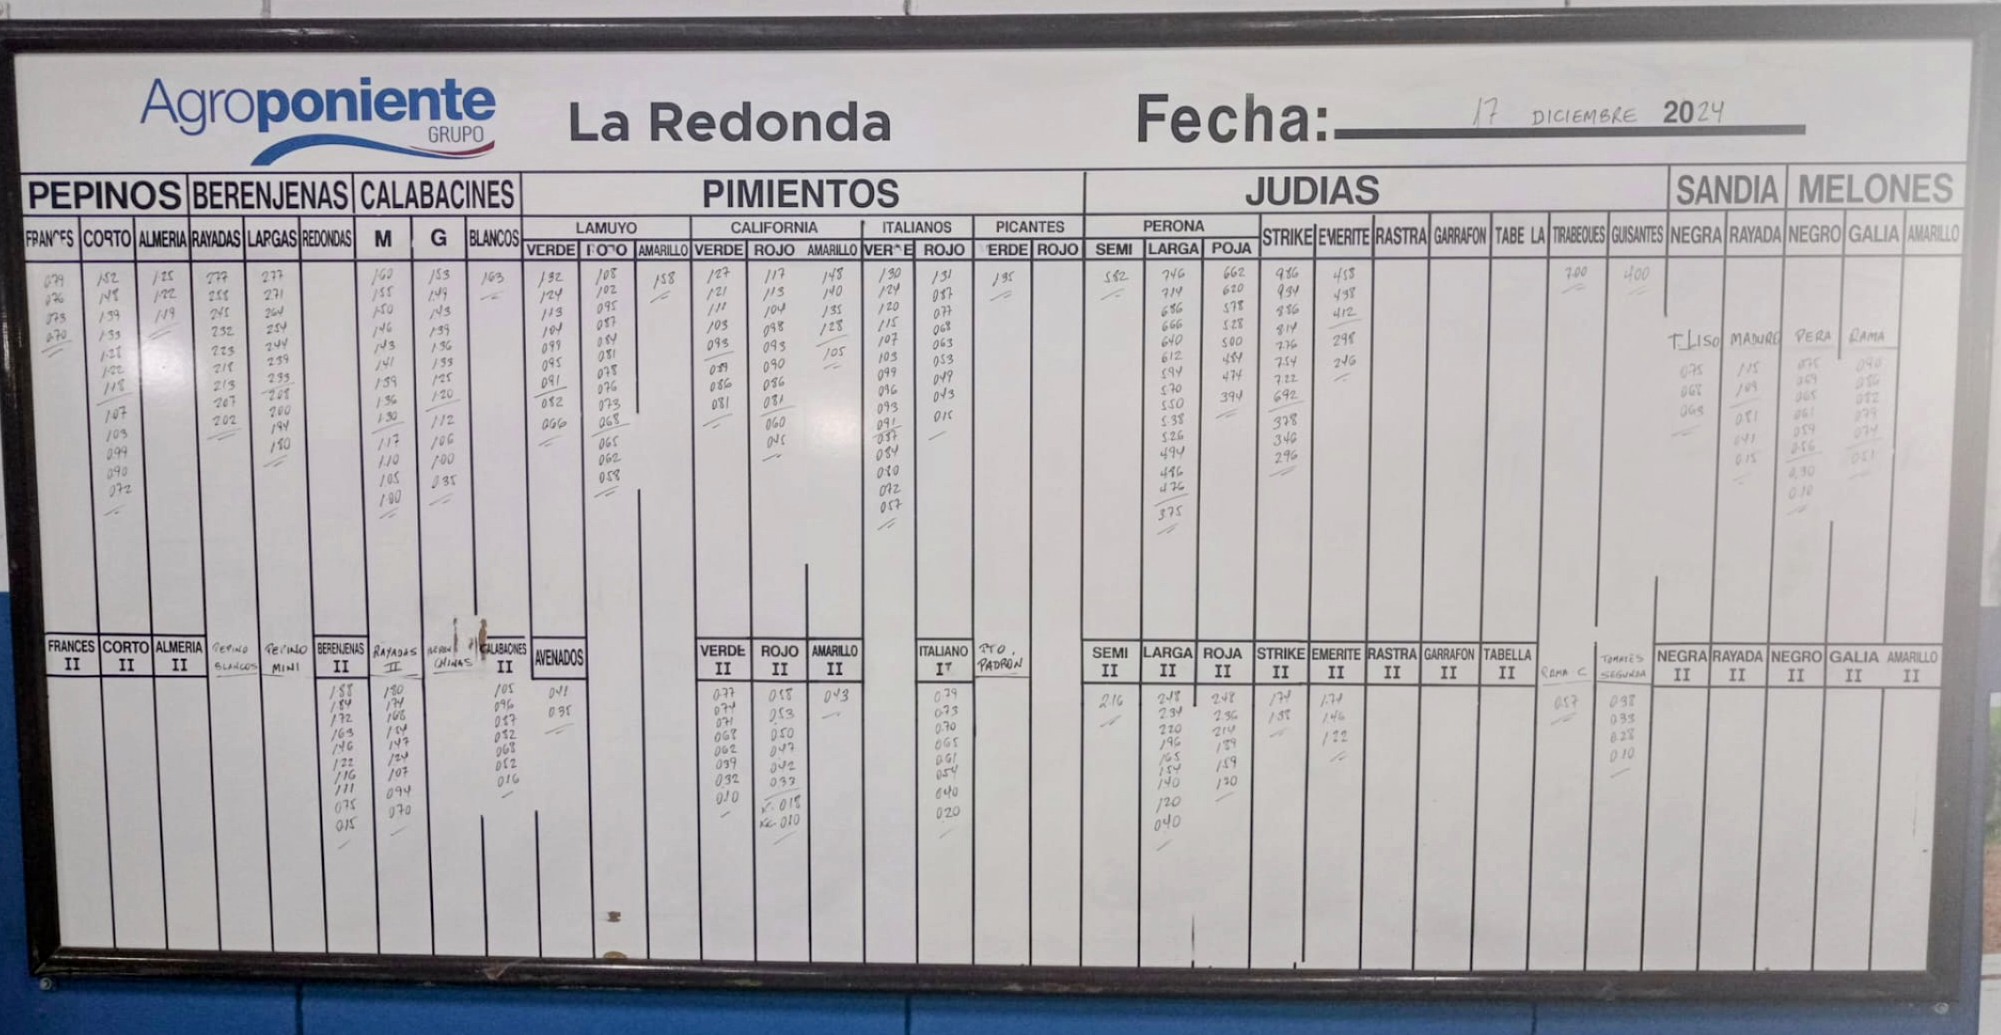 Agroponiente
GRUPO
La Redonda
Fecha: 17 DICIEMBRE 2024
PEPINOS BERENJENAS CALABACINES PIMIENTOS JUDIAS SANDIA MELONES
LAMUYO CALIFORNIA ITALIANOS PICANTES PERONA
FRANCES CORTO ALMERIA RAYADAS LARGAS REDONDAS M G BLANCOS VERDE ROJO AMARILLO VERDE ROJO AMARILLO VERDE ROJO VERDE ROJO SEMI LARGA ROJA STRIKE EMERITE RASTRA GARRAFON TABE LA TIRABEQUES GUISANTES NEGRA RAYADA NEGRO GALIA AMARILLO
079 152 125 277 277 160 153 163 132 108 158 127 117 148 130 131 135 582 746 662 986 458 700 400
076 148 122 258 271 155 149 124 102 121 113 140 124 087 714 620 934 438
073 139 119 245 264 150 143 113 095 111 104 135 120 077 686 578 886 412
070 133 232 254 146 139 104 087 103 098 128 115 068 666 528 814 298
128 223 244 143 136 099 084 093 093 105 107 063 640 500 776 246
122 218 239 141 133 095 081 089 090 103 053 612 484 754
118 213 233 139 125 091 078 086 086 099 049 594 474 722
107 207 208 136 120 082 076 081 081 096 043 570 394 692
103 202 200 130 112 066 073 060 093 015 550 378
099 194 117 106 068 045 091 538 346
090 180 110 100 065 087 526 296
072 105 035 062 084 494
100 058 080 486
072 476
057 375
T. LISO MADURO PERA RAMA
075 115 075 090
068 109 069 086
063 081 065 082
041 061 079
015 059 074
056 051
030
010
FRANCES II CORTO II ALMERIA II PEPINO BLANCOS PEPINO MINI BERENJENAS II RAYADAS II CHINAS CALABACINES II AVENADOS VERDE II ROJO II AMARILLO II ITALIANO II PTO. PADRON SEMI II LARGA II ROJA II STRIKE II EMERITE II RASTRA II GARRAFON II TABELLA II RAMA C TOMATES SEGUNDA NEGRA II RAYADA II NEGRO II GALIA II AMARILLO II
188 180 105 041 077 058 043 079 216 248 248 174 174 057 038
184 174 096 035 074 053 073 234 236 138 146 033
172 168 087 071 050 070 220 214 122 028
163 154 082 068 047 065 196 189 010
146 147 068 062 042 061 165 159
122 124 052 039 033 054 154 120
116 107 016 032 018 040 140
111 094 010 010 020 120
075 070 040
015